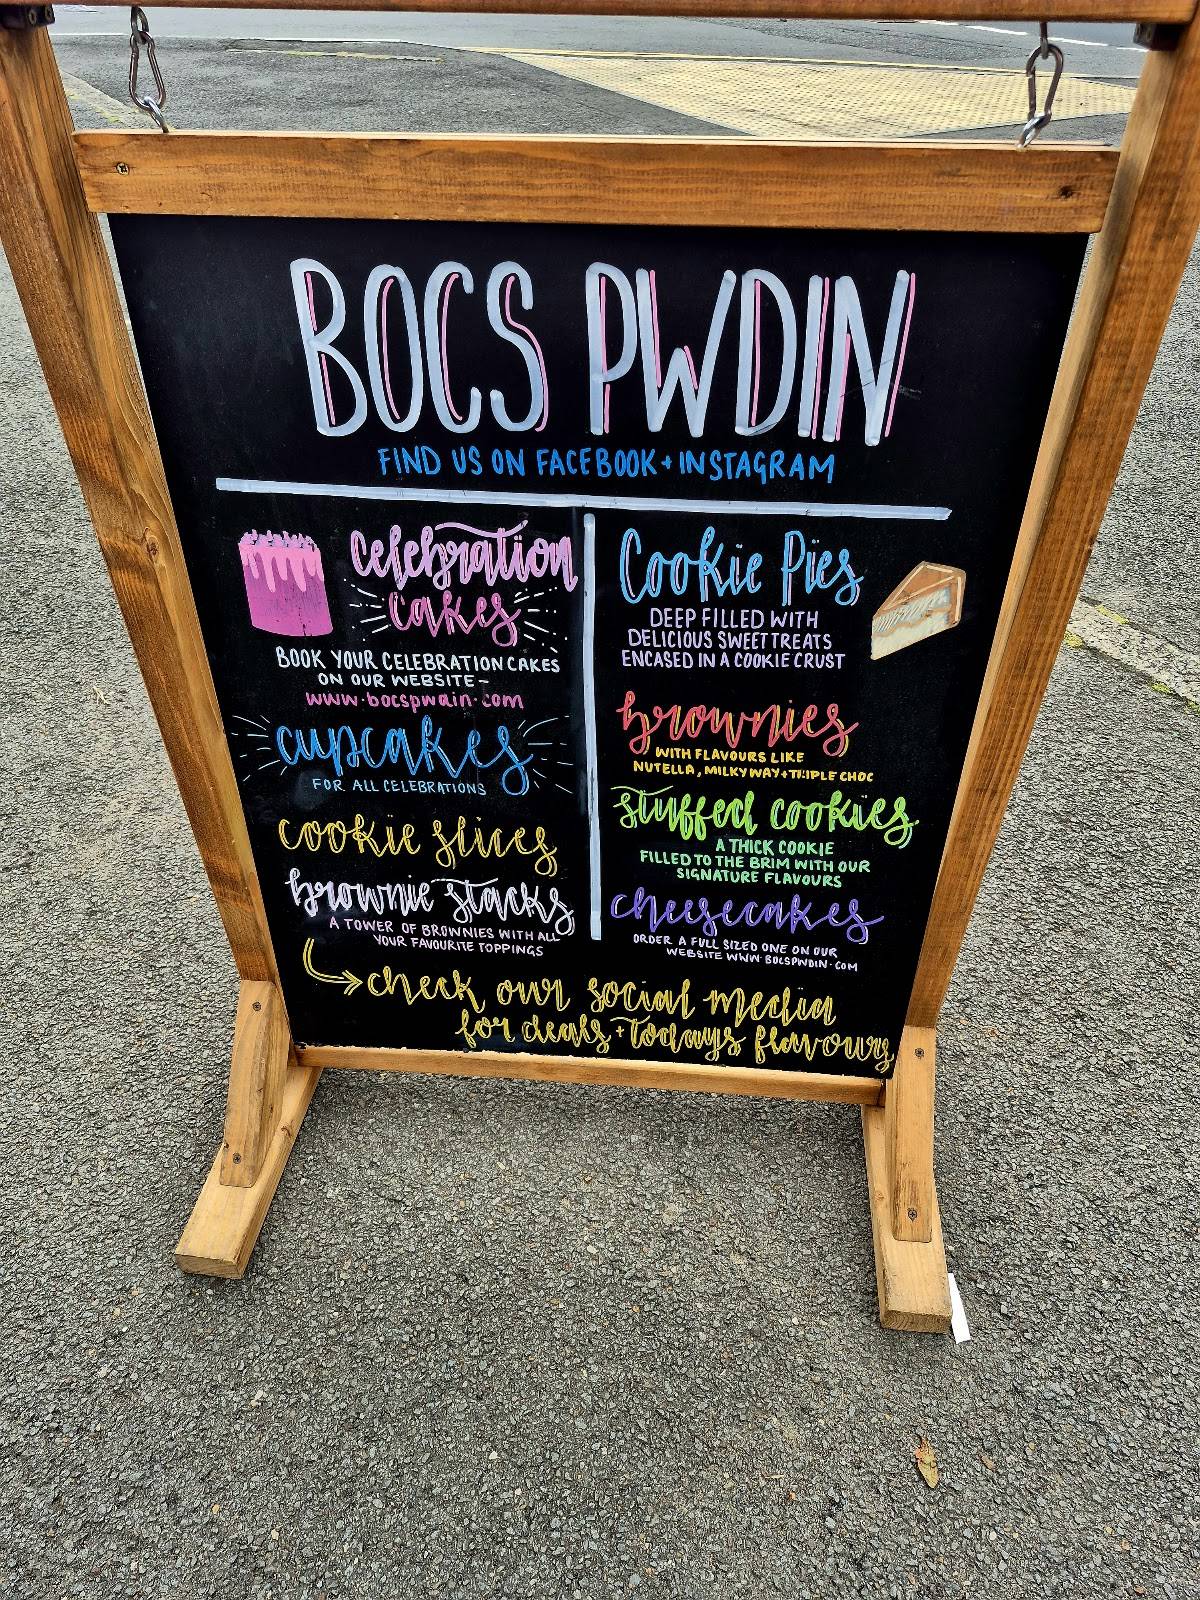 BOCS PWDIN
FIND US ON FACEBOOK + INSTAGRAM
celebration
cakes
BOOK YOUR CELEBRATION CAKES
ON OUR WEBSITE -
www.bocspwdin.com
cupcakes
FOR ALL CELEBRATIONS
cookie slices
brownie stacks
A TOWER OF BROWNIES WITH ALL
YOUR FAVOURITE TOPPINGS
Cookie Pies
DEEP FILLED WITH
DELICIOUS SWEET TREATS
ENCASED IN A COOKIE CRUST
brownies
WITH FLAVOURS LIKE
NUTELLA, MILKYWAY + TRIPLE CHOC
stuffed cookies
A THICK COOKIE
FILLED TO THE BRIM WITH OUR
SIGNATURE FLAVOURS
cheesecakes
ORDER A FULL SIZED ONE ON OUR
WEBSITE WWW.BOCSPWDIN.COM
check our social media
for deals + todays flavours